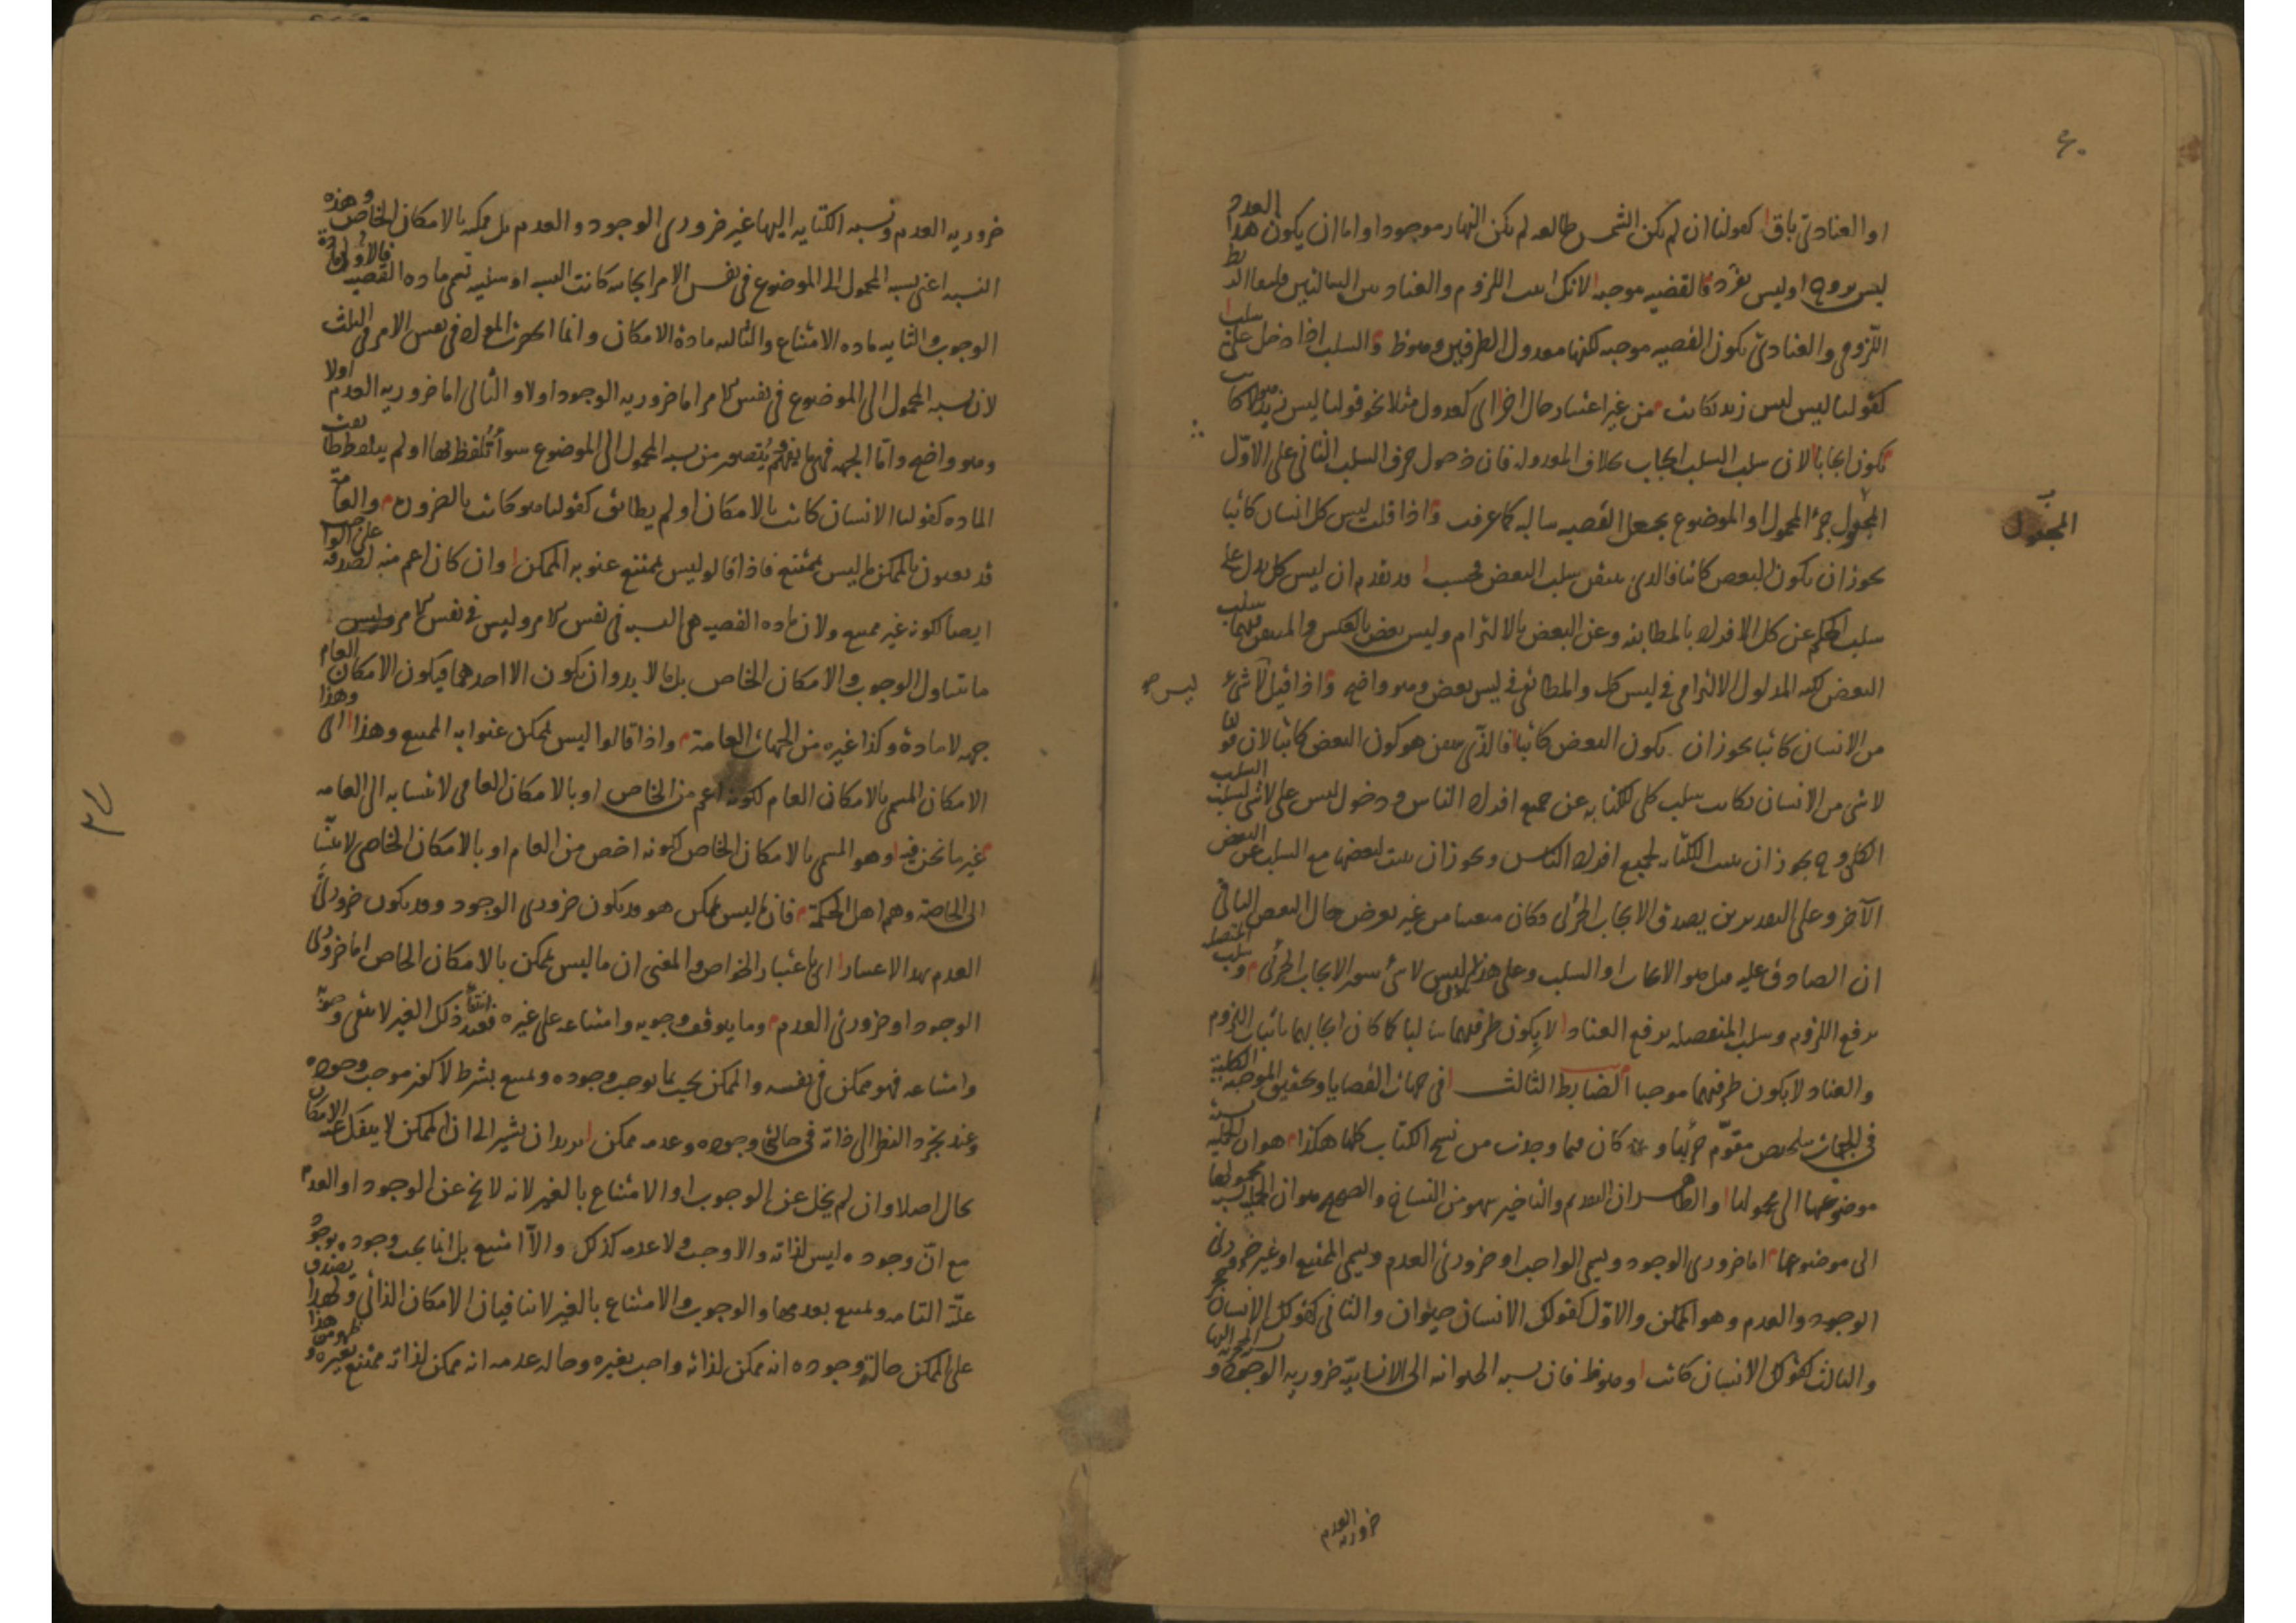 او العنادى باق كقولنا ان لم يكن الشمس طالعه لم يكن النهار موجودا واما ان يكون هذا العدد
ليس بزوج او ليس بفرد فالقضيه موجبه لانك اثبت اللزوم والعناد بين السالبتين
اللزومى والعنادى يكون القضيه موجبه لكنها معدول الطرفين وهو ظ والسلب اذا دخل على سلب
كقولنا ليس ليس زيد بكاتب من غير اعتبار حال اخرى كعدول مثلا نحو قولنا ليس
يكون ايجابا لان سلب السلب ايجاب بخلاف المعدوله فان دخول حرف السلب الثانى على الاول
المجعول جزء المحمول او الموضوع يجعل القضيه سالبه كما عرفت واذا قلت ليس كل انسان كاتبا
يجوز ان يكون البعض كاتبا فالذى يتيقن سلب البعض فحسب وقد تقدم ان ليس كل يدل على
سلب الحكم عن كل الافراد بالمطابقه وعن البعض بالالتزام وليس بعض بالعكس والمتيقن فيهما سلب
البعض لكنه المدلول الالتزامى فى ليس كل والمطابقى فى ليس بعض وهو واضح واذا قيل لا شىء
من الانسان كاتبا يجوز ان يكون البعض كاتبا فالذى يتيقن هو كون البعض كاتبا لان قولنا
لا شى من الانسان بكاتب سلب كلى للكتابه عن جميع افراد الناس ودخول ليس على لا شى لسلب السلب
الكلى وح يجوز ان يثبت الكتابه لجميع افراد الناس ويجوز ان يثبت لبعضها مع السلب عن البعض
الآخر وعلى التقديرين يصدق الايجاب الجزئى فكان متيقنا من غير تعرض حال البعض الباقى
ان الصادق عليه هل هو الايجاب او السلب وعلى هذا ليس لا شئ سور الايجاب الجزئى وسلب المتصله
برفع اللزوم وسلب المنفصله برفع العناد لا بكون طرفيهما سالبا كما كان ايجابهما باثبات اللزوم
والعناد لا بكون طرفيهما موجبا الضابط الثالث فى جهات القضايا وتحقيق الموجبه الكليه
فى الجهات كان فيما وجدت من نسخ الكتاب كلها هكذا هو ان الحمليه نسبة
موضوعها الى محمولها والظاهر ان التقديم والتاخير سهو من النساخ والصحيح هو ان الحمليه نسبه محمولها
الى موضوعها اما ضرورى الوجود ويسمى الواجب او ضرورى العدم ويسمى الممتنع او غير ضرورى
الوجود والعدم وهو الممكن والاول كقولك الانسان حيوان والثانى كقولك الانسان حجر
والثالث كقولك الانسان كاتب وهو ظ فان نسبه الحيوانيه الى الانسانيّه ضروريه الوجود و نسبه الحجريه اليها
ضروريه العدم
المجعول
ليس
ضروريه العدم ونسبه الكتابه اليها غير ضرورى الوجود والعدم بل ممكنه بالامكان الخاص وهذه
النسبه اعنى نسبه المحمول الى الموضوع فى نفس الامر ايجابيه كانت النسبه او سلبيه تسمى ماده القضيه فالاولى مادة
الوجوب والثانيه ماده الامتناع والثالثه مادة الامكان وانما انحصرت المواد فى نفس الامر فى الثلث
لان نسبه المحمول الى الموضوع فى نفس الامر اما ضروريه الوجود اولا والثانى اما ضروريه العدم اولا
وهو واضح واما الجهه فهى ما يفهم ويتصور من نسبه المحمول الى الموضوع سواء تُلفظ بها او لم يتلفظ طابقت
الماده كقولنا الانسان كاتب بالامكان او لم يطابق كقولنا هو كاتب بالضروره والعامّة
قد يعنون بالممكن ما ليس بممتنع فاذا قالو ليس بممتنع عنو به الممكن وان كان اعم منه لصدقه على الواجب
ايضا لكونه غير ممتنع ولان ماده القضيه هى النسبه فى نفس الامر وليس فى نفس الامر
ما يتناول الوجوب والامكان الخاص بل لا بد وان يكون الا احدهما فيكون الامكان العام
جهه لا مادة وكذا غيره من الجهات العامة واذا قالوا ليس بممكن عنوا به الممتنع وهذا
الامكان المسمى بالامكان العام لكونه اعم من الخاص او بالامكان العامى لانتسابه الى العامه
غير ما نحن فيه وهو المسمى بالامكان الخاص لكونه اخص من العام او بالامكان الخاصى لانتسابه
الى الخاصة وهم اهل الحكمة فان ما ليس بممكن هو قد يكون ضرورى الوجود وقد يكون ضرورى
العدم بهذا الاعتبار اى باعتبار الخواص والمعنى ان ما ليس بممكن بالامكان الخاص اما ضرورى
الوجود او ضرورى العدم وما يتوقف وجوبه وامتناعه على غيره فعند انتفاء ذلك الغير لا يبقى وجوبه
وامتناعه فهو ممكن فى نفسه والممكن يجب بما يوجب وجوده ويمتنع بشرط لا كون موجب وجوده
وعند تجرد النظر الى ذاته فى حالتى وجوده وعدمه ممكن يريد ان يشير الى ان الممكن لا ينفك عنه الامكان
بحال اصلا وان لم يخل عن الوجوب او الامتناع بالغير لانه لا يخ عن الوجود او العدم
مع انّ وجوده ليس لذاته والا وجب ولا عدمه كذلك والّا امتنع بل انما يجب وجوده بوجود
علّته التامه ويمتنع بعدمها والوجوب والامتناع بالغير لا ينافيان الامكان الذاتى ولهذا يصدق
على الممكن حالة وجوده انه ممكن لذاته واجب بغيره وحاله عدمه انه ممكن لذاته ممتنع بغيره